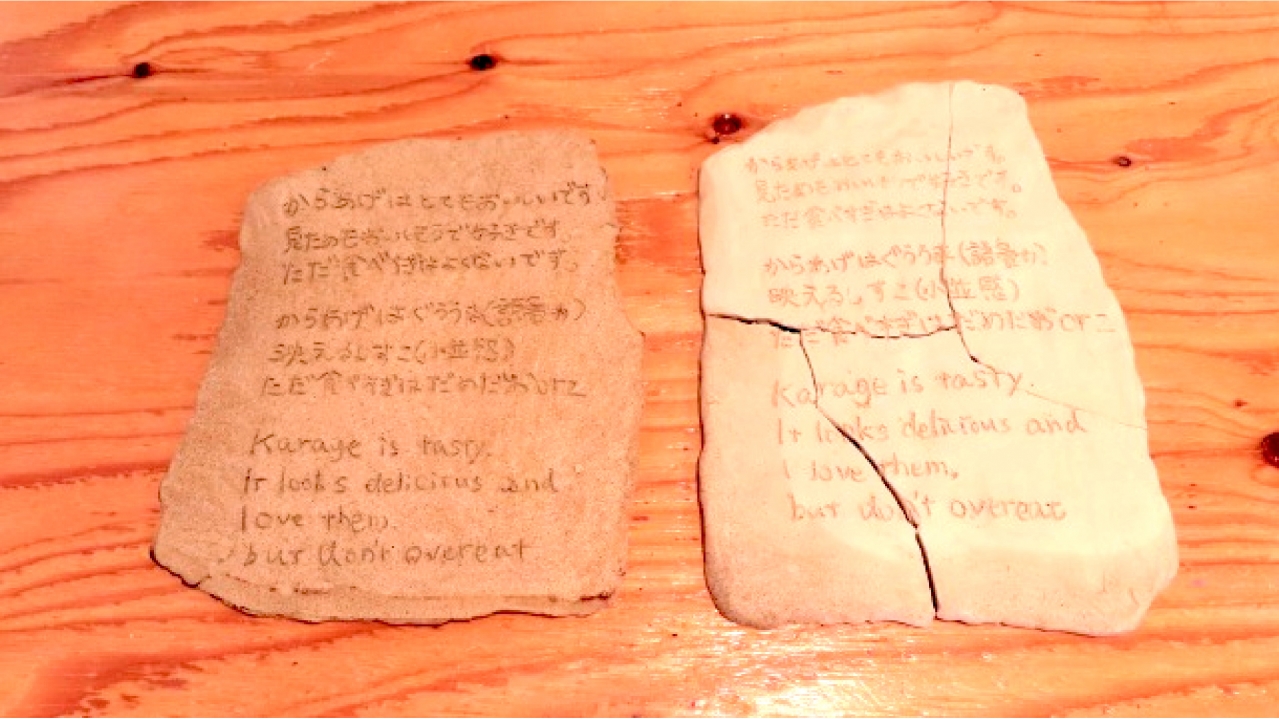 からあげはとてもおいしいです
見ためもおいしそうですきです
ただ食べすぎはよくないです。
からあげはぐうう真(語彙力)
映えるしすこ(小並感)
ただ食べすぎはだめだおorz
Karage is tasty.
It looks delicious and
love them.
but don't overeat
からあげはとてもおいしいです。
見ためもおいしそうです。
ただ食べすぎはよくないです。
からあげはぐうう(語彙力)
映えるしすこ(小並感)
ただ食べすぎはだめだおorz
Karage is tasty.
It looks delicious and
I love them,
but don't overeat